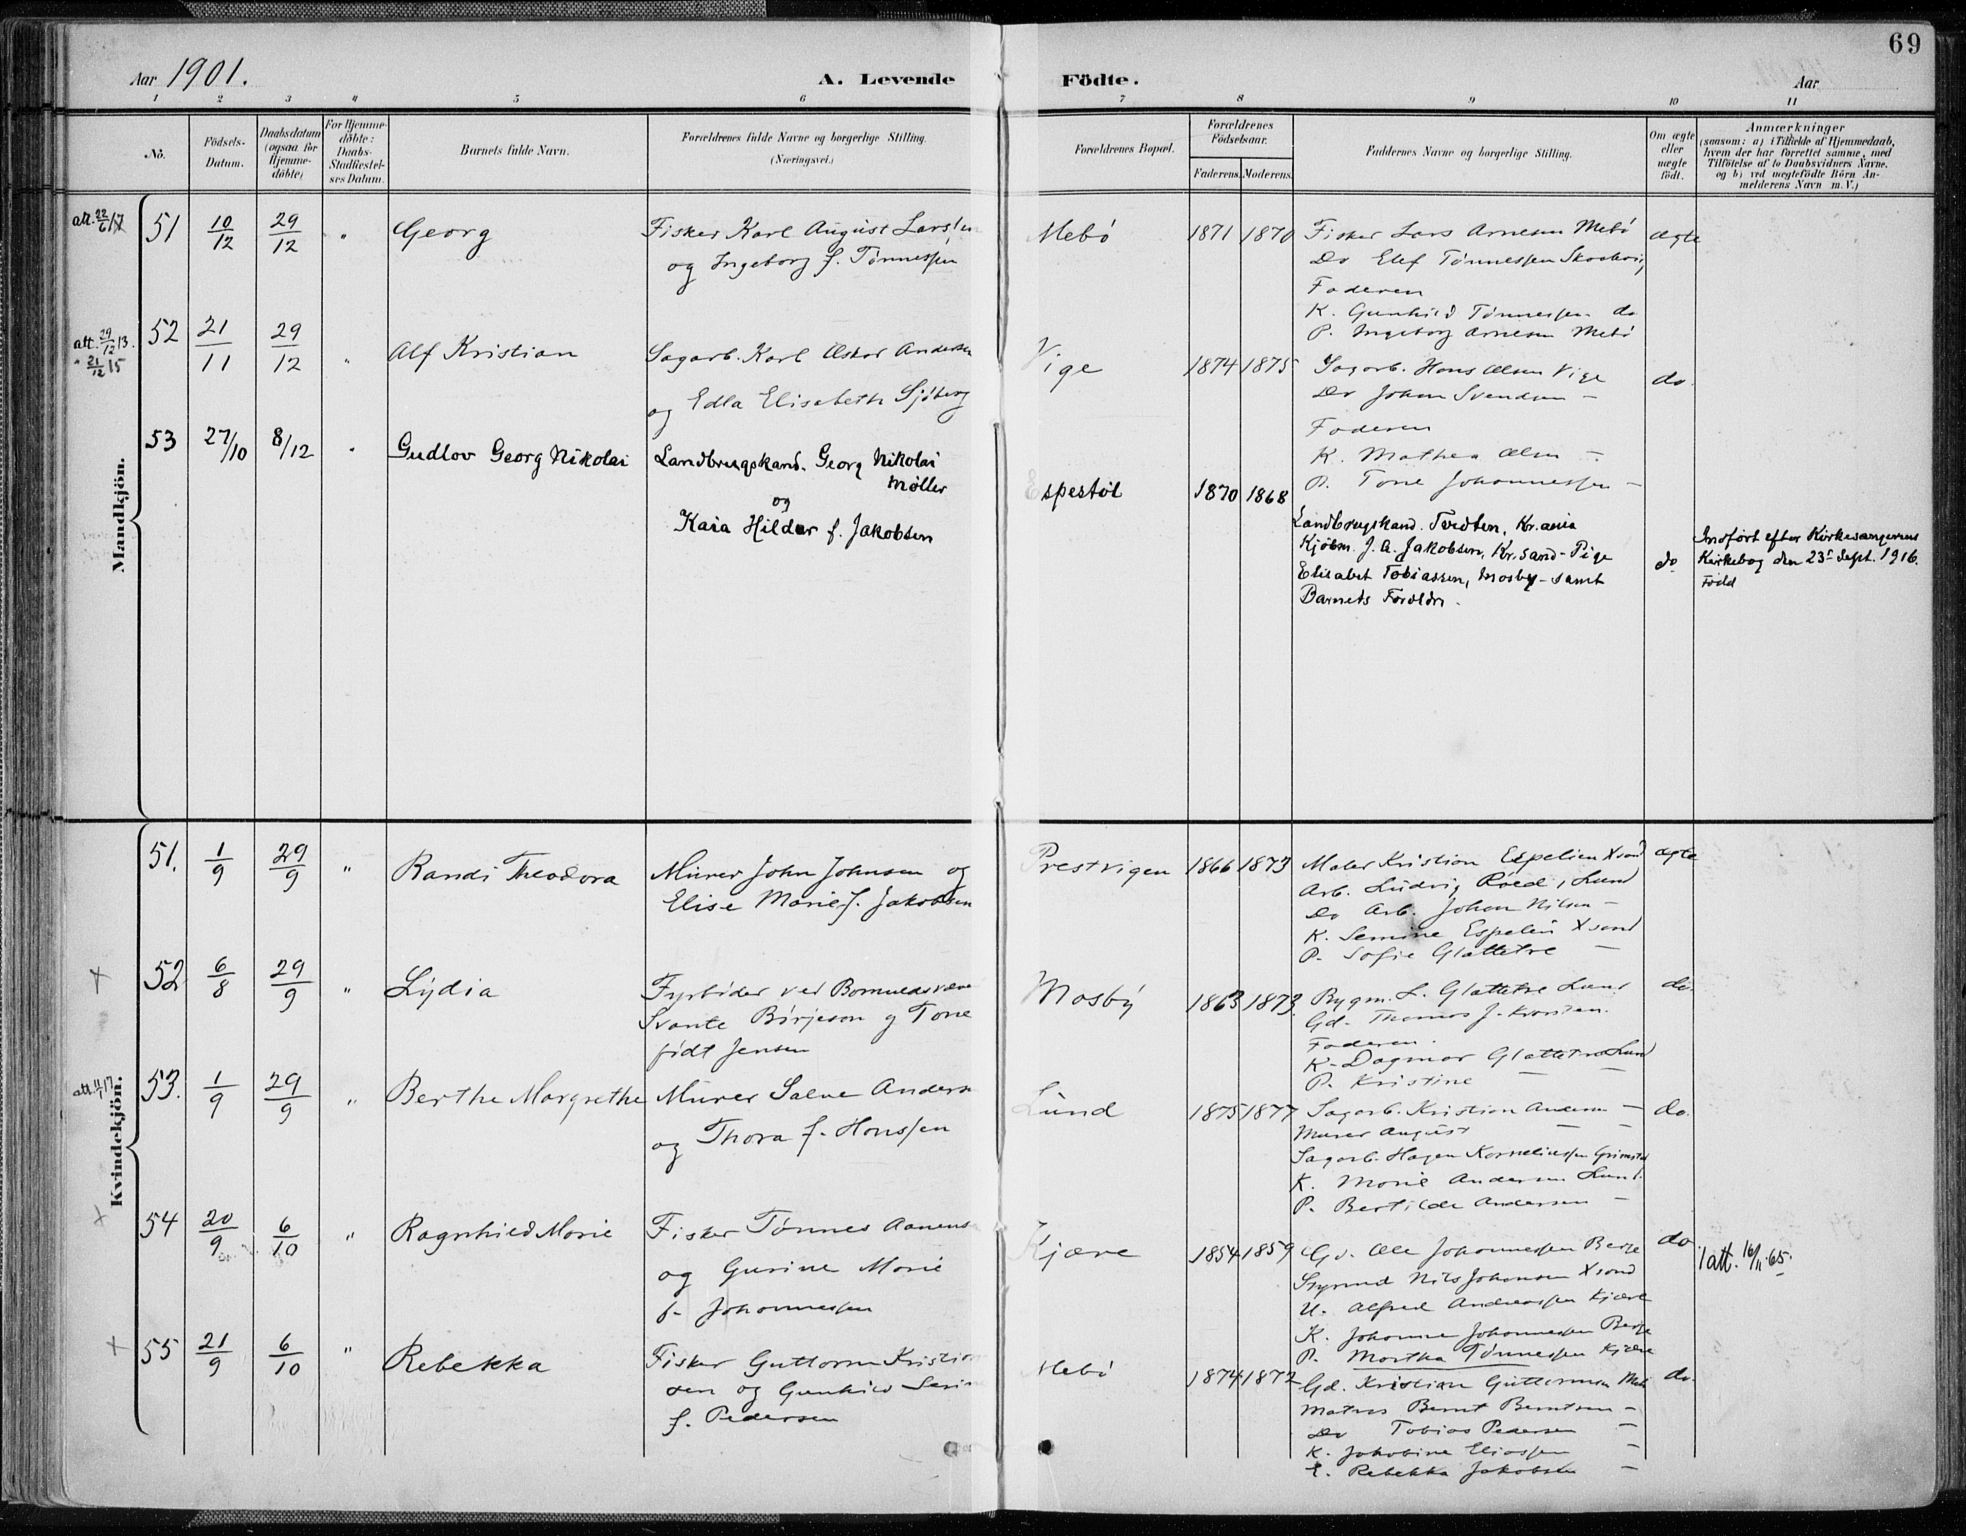 69
Aar 1901.
A. Levende Födte.
Aar
1 2 3 4 5 6 7 8 9 10 11
No.
Födsels-Datum.
Daabsdatum (ogsaa for Hjemme-döbte)
For Hjemme-döbte: Daabs-Stadfæstel-ses Datum.
Barnets fulde Navn.
Forældrenes fulde Navne og borgerlige Stilling. (Næringsvei.)
Forældrenes Bopæl.
Forældrenes Födselsaar.
Faderens. Moderens.
Faddernes Navne og borgerlige Stilling.
Om ægte eller uægte födt.
Anmærkninger
(saasom: a) i Tilfælde af Hjemmedaab, hvem der har forrettet samme, med Tilföielse af to Daabsvidners Navne, og b) ved uægtefödte Börn An-melderens Navn m. V.)
Mandkjön.
att. 22/6 17
51 10/12 29/12 " Georg
Fisker Karl August Larsen
og Ingeborg f. Tönnessen
Mebö 1871 1870
Fisker Lars Arnesen Mebö
Do Elef Tönnessen
Faderen
K. Gunhild Tönnessen do
P. Ingeborg Arnesen Mebö
ægte
att. 29/12 13.
" 21/12 15
52 21/11 29/12 " Alf Kristian
Sagarb. Karl Oskar Andersen
og Edla Elisabeth Sjöberg
Vige 1874 1875
Sagarb. Hans Olsen Vige
Do Johan Svendsen –
Faderen
K. Mathea Olsen –
P. Tone Johannessen –
do.
53 27/10 8/12 " Gudlov Georg Nikolai
Landbrugskand. Georg Nikolai
Møller
og
Kaia Hildur f. Jakobsen
Espestøl 1870 1868
Landbrugskand. Tvedten, Kr.ania
Kjøbm. J. A. Jakobsen, Kr.sand – Pige
Elisabet Tobiassen, Mosby – samt
Barnets Forældre.
do
Indført efter Kirkesangerens
Kirkebog den 23de Sept. 1916.
Född
Kvindekjön.
51. 1/9 29/9 " Randi Theodora
Murer John Johnsen og
Elise Marie f. Jakobsen
Prestvigen 1866 1873
Maler Kristian Espelien Xsand
Arb. Ludvig Roed, Lund
Do Arb. Johan Nilsen –
K. Semine Espelin Xsand
P. Sofie Glattetre –
ægte
52 6/8 29/9 " Lydia
Fyrböder ved Bomuldsvæve
Svante Börjeson og Tone
födt Jensen
Mosby 1863 1873.
Bygm. L. Glattetre Lund
Gd. Thomas J. Kvarsten.
Faderen.
K. Dagmar Glattetre Lund
P. Kristine – –
do.
att. 11/1 17
53. 1/9 29/9 " Berthe Margrethe
Murer Salve Andersen
og Thora f. Hanssen
Lund 1875 1877
Sagarb. Kristian Andersen –
Murer August – –
Sagarb. Hagen Korneliussen Grimstad
K. Marie Andersen Lund.
P. Bertilde Andersen –
do.
54 20/9 6/10 " Ragnhild Marie
Fisker Tönnes Aanensen
og Gurine Marie
f. Johannessen
Kjære 1854 1859
Gd. Ole Johannessen Berge
Styrmd Nils Johansen Xsand
U. Alfred Andreassen Kjære
K. Johanne Johannessen Berge
P. Martha Tönnessen Kjære
do
1 att. 16/11 65.
55 21/9 6/10 " Rebekka
Fisker Guttorm Kristian
sen og Gunhild Serine
f. Pedersen
Mebö 1874 1872
Gd. Kristian Guttormsen Mebö
Matros Bernt Berntsen –
Do Tobias Pedersen –
K. Jakobine Eliassen –
P. Rebekka Jakobsen –
do.